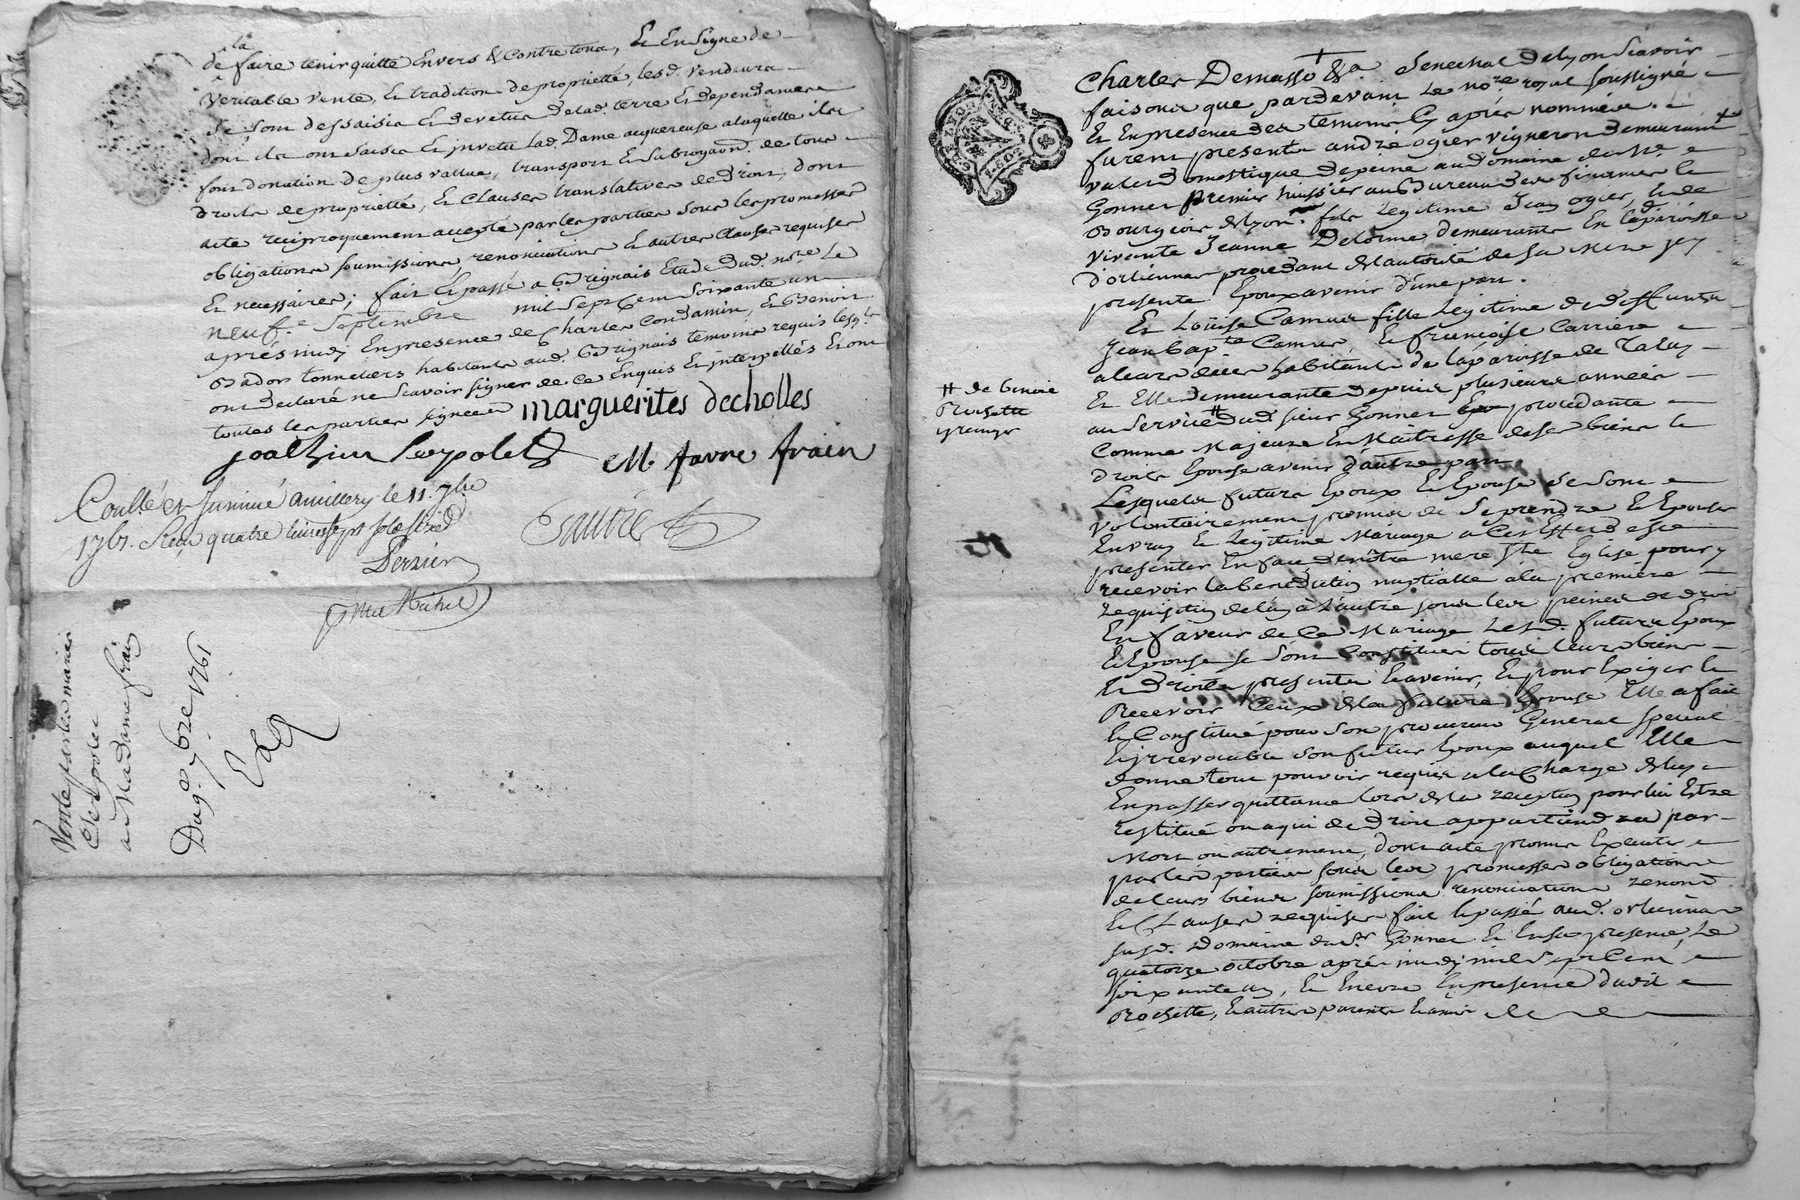 la
de faire tenir quitte Envers & Contre tous, Et En Signe de
Veritable Vente, Et tradition de proprieté, lesd. Vendeurs
Se sont dessaisis Et devetus de lad. terre Et dependances
dont ils ont Saisie Et jnvetu lad. Dame acquereuse a laquelle ils
font donation de plus vallue, transport Et Subrogaon. de tous
droits de proprieté, Et Clauses translatives de Droit, dont
acte reciproquement accepté par les parties sous les promesses
obligations soumissions, renonciations Et autres Clauses requises
Et necessaires; fait Et passé a Brignais Etude dud. nore. Le
neufe. Septembre mil Sept Cent Soixante un
aprés midy En presence de Charles Condamin, Et Benoit
Bador tonneliers habitants aud. Brignais temoins requis lesqls.
ont declaré ne Scavoir signer de ce Enquis Et interpellés Et ont
toutes les parties signées
marguerites decholles
M favre frain
Coullé et au millery le 11. 7bre
1761. Reçu quatre livres sept sols
Perrier
Vente par les mariés
a Madame frain
Du 9e. 7bre 1761
Charles Demasso &a. Senechal de Lyon Scavoir
faisons que pardevant Le nore. royal soussigné
Et En presence des temoins Cy aprés nommés
furent presents andré ogier vigneron demeurant
valet domestique de peine au domaine du Sr.
Gonnet premier huissier au Bureau des finances Et
Bourgeois de Lyon fils Legitime Jean ogier, Et de
vivante Jeanne Delorme demeurants En lad. paroisse
d'orlienas procedant de l'autorité de sa Mere jcy
presente Epoux avenir d'une part.
Et Loüise Camus fille Legitime de deffunts
Jean Bapte. Camus, Et françoise Carriere
a leurs vies habitants de la paroisse de Taluy
Et Elle demeurante depuis plusieurs années
au Service dud. sieur Gonnet procedante
Comme Majeure Et Maîtresse de ses biens Et
droits Epouse avenir d'autre part
# de benoit
Rochette
Lesquels futurs Epoux Et Epouse Se sont
volontairement promis de Se prendre Et Epouser
En vray Et Legitime Mariage a Ces Effets de Se
presenter En face de nôtre mere Ste. Eglise pour y
recevoir la benediction nuptialle a la premiere
requisition de l'un à l'autre sous les peines de droit
En faveur de Ce Mariage Lesd. futurs Epoux
Et Epouse se sont Constitués tous leurs biens
Et Droits presents Et avenir, Et pour Exiger Et
Recevoir Ceux de la future Epouse Elle a fait
Et Constitué pour Son procureur General special
Et jrrevocable son futur Epoux auquel Elle
donne tout pouvoir requis a la Charge de luy
En passer quittance lors de la reception pour lui Estre
restitué ou a qui de Droit appartiendra par
Mort ou autrement, dont acte promis Executer
par les parties sous les promesses obligations
de leurs biens soumissions renonciations
Et Clauses requises fait Et passé aud. orlienas
susd. Domaine dud. Sr. Gonnet Et En sa presence, Le
quatorze octobre aprés midy mil Sept Cent
soixante un, Et Encore En presence dud.
Rochette, Et autres parents Et amis